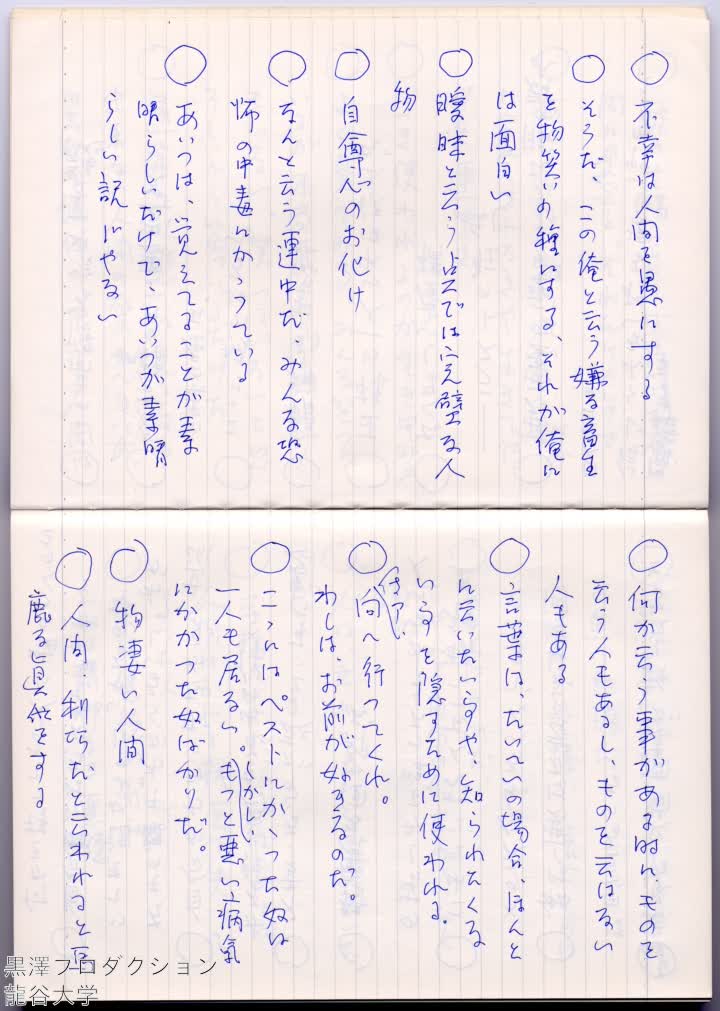 ○ 不幸は人間を愚にする
○ そうだ、この俺と云う嫌な畜生
を物笑いの種にする、それが俺に
は面白い
○ 曖昧と云う点では完璧な人
物
○ 自尊心のお化け
○ なんと云う連中だ、みんな恐
怖の中毒にかゝっている
○ あいつは、覚えてることが素
晴らしいだけで、あいつが素晴
らしい訳ぢやない
○ 何か云う事がある時に、ものを
云う人もあるし、ものを云はない
人もある
○ 言葉は、たいていの場合、ほんと
に云いたい事や、知られたくな
い事を隠すために使われる。
○ 向へ行ってくれ。
わしは、お前が
○ こゝにはペストにかゝった奴は
一人も居ない。(しかし)もっと悪い病氣
にかかった奴ばかりだ。
○ 物凄い人間
○ 人間、利巧だと云われると馬
鹿な真似をする
黒澤プロダクション
龍谷大学